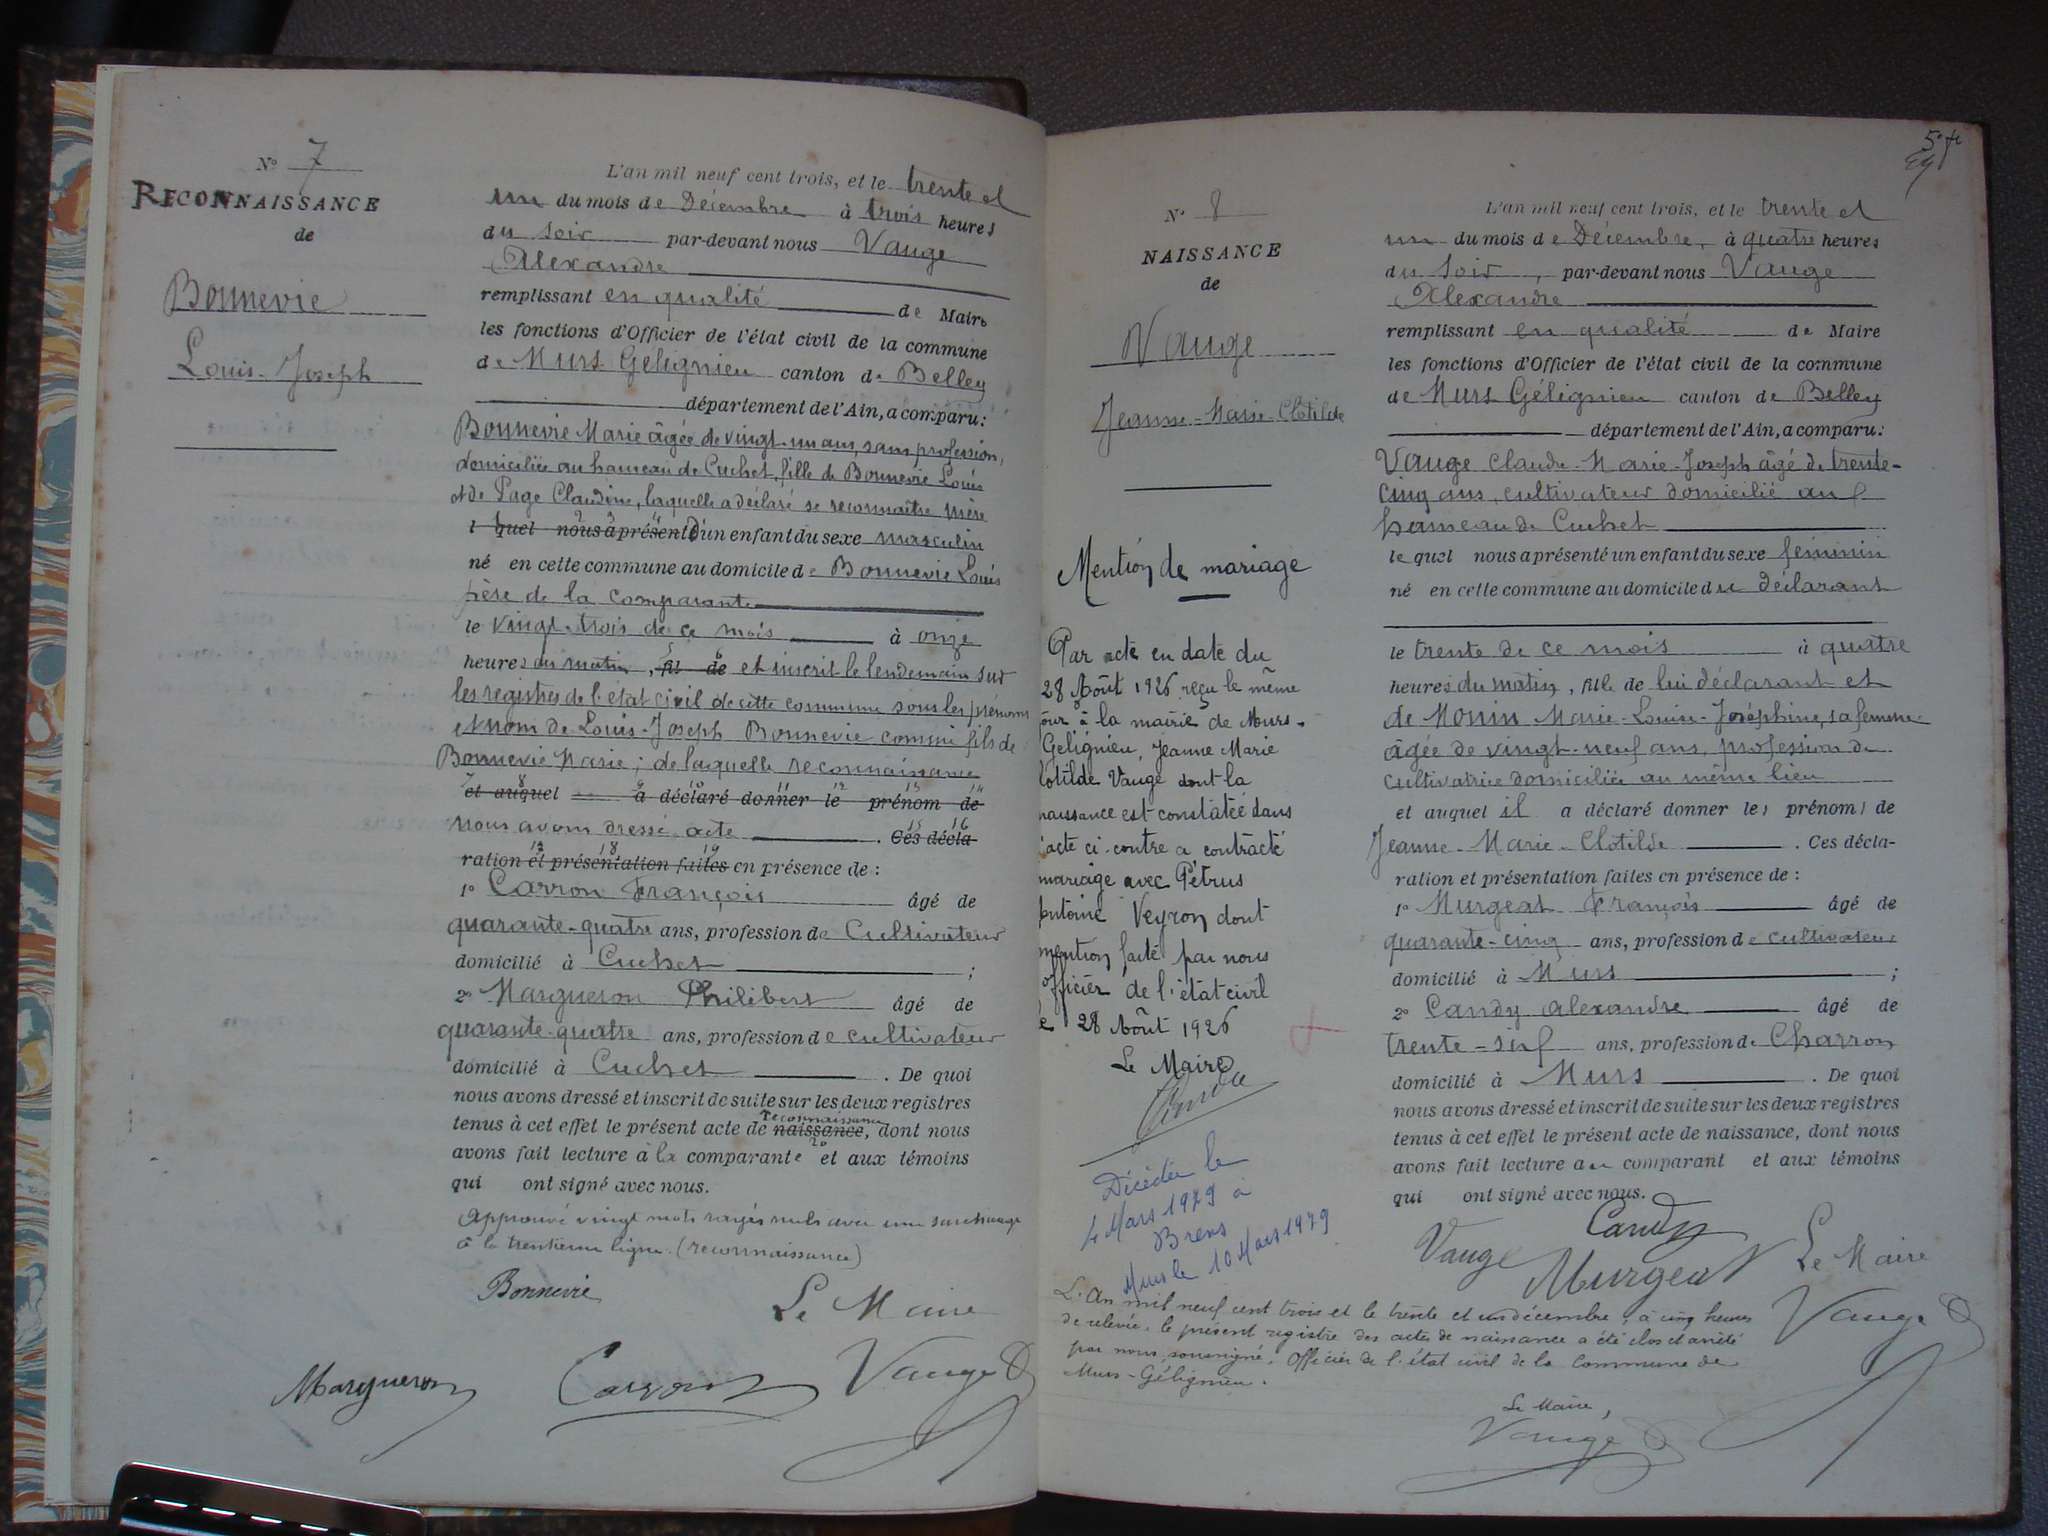 N° 7
RECONNAISSANCE
de
Bonnevie
Louis-Joseph
L'an mil neuf cent trois, et le trente et
un du mois de Décembre à trois heures
du soir par-devant nous Vauge
Alexandre
remplissant en qualité de Maire
les fonctions d'Officier de l'état civil de la commune
de Murs Gélignieu canton de Belley
département de l'Ain, a comparu:
Bonnevie Marie âgée de vingt-un ans, sans profession,
domiciliée au hameau de Cuchet, fille de Bonnevie Louis
et de Page Claudine, laquelle a déclaré se reconnaître mère
l quel nous a présenté d'un enfant du sexe masculin
né en cette commune au domicile de Bonnevie Louis
père de la comparante
le vingt-trois de ce mois à onze
heures du matin, fil de et inscrit le lendemain sur
les registres de l'état civil de cette commune sous les prénoms
et nom de Louis-Joseph Bonnevie comme fils de
Bonnevie Marie; de laquelle reconnaissance
et auquel a déclaré donner le prénom de
nous avons dressé acte . Ces décla-
ration et présentation faites en présence de :
1° Carron François âgé de
quarante-quatre ans, profession de Cultivateur
domicilié à Cuchet ;
2° Margueron Philibert âgé de
quarante-quatre ans, profession de cultivateur
domicilié à Cuchet . De quoi
nous avons dressé et inscrit de suite sur les deux registres
reconnaissance
tenus à cet effet le présent acte de naissance, dont nous
avons fait lecture à la comparante et aux témoins
qui ont signé avec nous.
Approuvé vingt mots rayés nuls avec une surcharge
à la trentième ligne. (reconnaissance)
Bonnevie
Le Maire
Margueron Carron Vauge
5e ft
N° 8
NAISSANCE
de
Vauge
Jeanne-Marie-Clotilde
Mention de mariage
Par acte en date du
28 Août 1926 reçu le même
jour à la mairie de Murs-
Gélignieu, Jeanne Marie
Clotilde Vauge dont la
naissance est constatée dans
l'acte ci-contre a contracté
mariage avec Pétrus
Antoine Veyron dont
mention faite par nous
officier de l'état civil
le 28 Août 1926
Le Maire
Décédée le
4 Mars 1979 à
Brens
Murs le 10 Mars 1979
L'an mil neuf cent trois, et le trente et
un du mois de Décembre, à quatre heures
du soir, par-devant nous Vauge
Alexandre
remplissant en qualité de Maire
les fonctions d'Officier de l'état civil de la commune
de Murs Gélignieu canton de Belley
département de l'Ain, a comparu:
Vauge Claude-Marie-Joseph âgé de trente-
cinq ans, cultivateur domicilié au
hameau de Cuchet
le quel nous a présenté un enfant du sexe féminin
né en cette commune au domicile du déclarant
le trente de ce mois à quatre
heures du matin, fille de lui déclarant et
de Monin Marie-Louise-Joséphine, sa femme
âgée de vingt-neuf ans, profession de
cultivatrice domiciliée au même lieu
et auquel il a déclaré donner les prénoms de
Jeanne-Marie-Clotilde . Ces décla-
ration et présentation faites en présence de :
1° Murgeat François âgé de
quarante-cinq ans, profession de cultivateur
domicilié à Murs ;
2° Candy Alexandre âgé de
trente-six ans, profession de Charron
domicilié à Murs . De quoi
nous avons dressé et inscrit de suite sur les deux registres
tenus à cet effet le présent acte de naissance, dont nous
avons fait lecture au comparant et aux témoins
qui ont signé avec nous.
Candy
Vauge Murgeat Le Maire
Vauge
L'an mil neuf cent trois et le trente et un décembre, à cinq heures
de relevée, le présent registre des actes de naissance a été clos et arrêté
par nous soussigné, Officier de l'état civil de la commune de
Murs-Gélignieu.
Le Maire,
Vauge